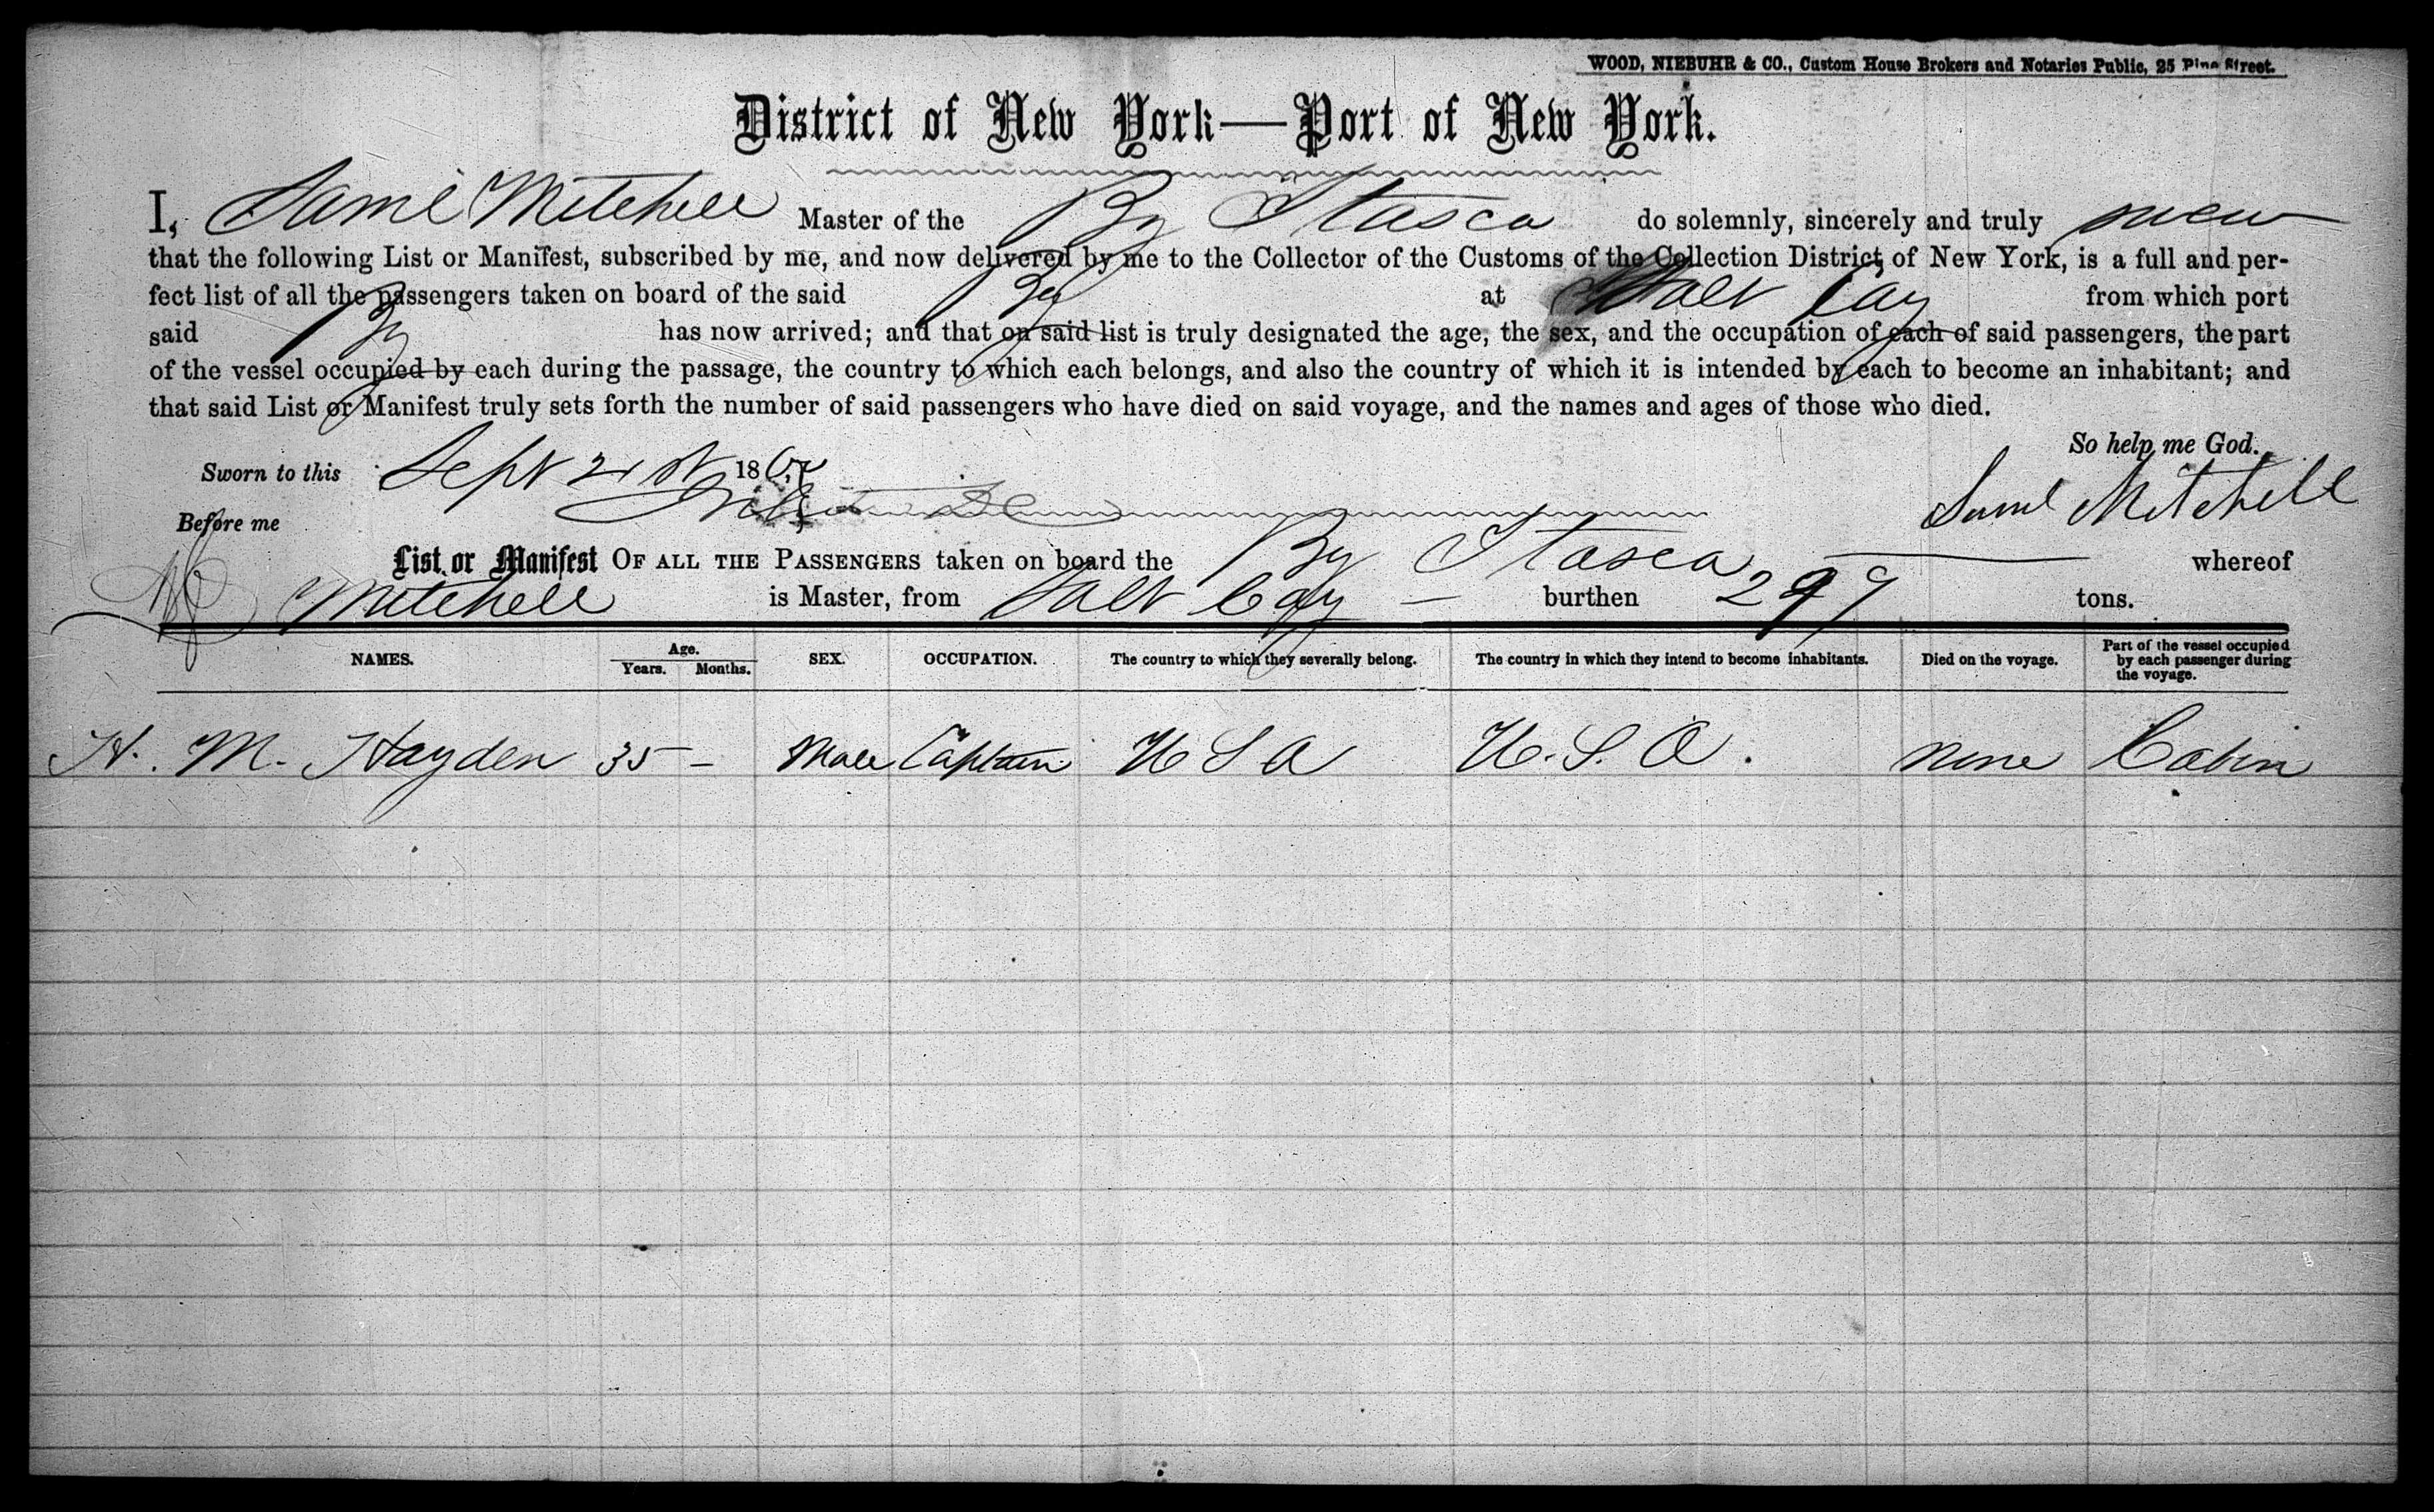 WOOD, NIEBUHR & CO., Custom House Brokers and Notaries Public, 25 Pine Street.
District of New York—Port of New York.
I, Saml Mitchell Master of the Bg Itasca do solemnly, sincerely and truly swear
that the following List or Manifest, subscribed by me, and now delivered by me to the Collector of the Customs of the Collection District of New York, is a full and per-
fect list of all the passengers taken on board of the said Bg at Salt Cay from which port
said Bg has now arrived; and that on said list is truly designated the age, the sex, and the occupation of each of said passengers, the part
of the vessel occupied by each during the passage, the country to which each belongs, and also the country of which it is intended by each to become an inhabitant; and
that said List or Manifest truly sets forth the number of said passengers who have died on said voyage, and the names and ages of those who died.
So help me God.
Sworn to this Sept 21st 186
Saml Mitchell
Before me
List or Manifest OF ALL THE PASSENGERS taken on board the Bg Itasca whereof
Mitchell is Master, from Salt Cay — burthen 299 tons.
NAMES. Age. Years. Months. SEX. OCCUPATION. The country to which they severally belong. The country in which they intend to become inhabitants. Died on the voyage. Part of the vessel occupied by each passenger during the voyage.
H. M. Hayden 35 - Male Captain U S A U. S. A. none Cabin